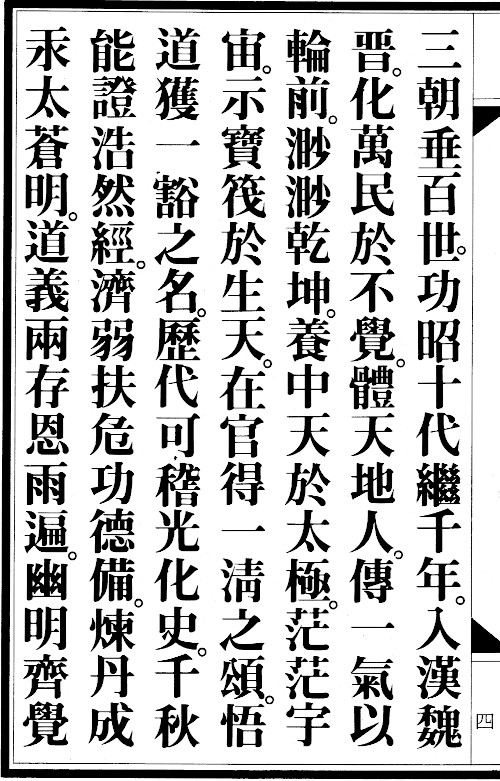 三朝垂百世。功昭十代繼千年。入漢魏
晋。化萬民於不覺。體天地人。傳一氣以
輪前。渺渺乾坤。養中天於太極。茫茫宇
宙。示寶筏於生天。在官得一淸之頌。悟
道獲一豁之名。歷代可稽光化史。千秋
能證浩然經。濟弱扶危功德備。煉丹成
汞太蒼明。道義兩存恩雨遍。幽明齊覺
四